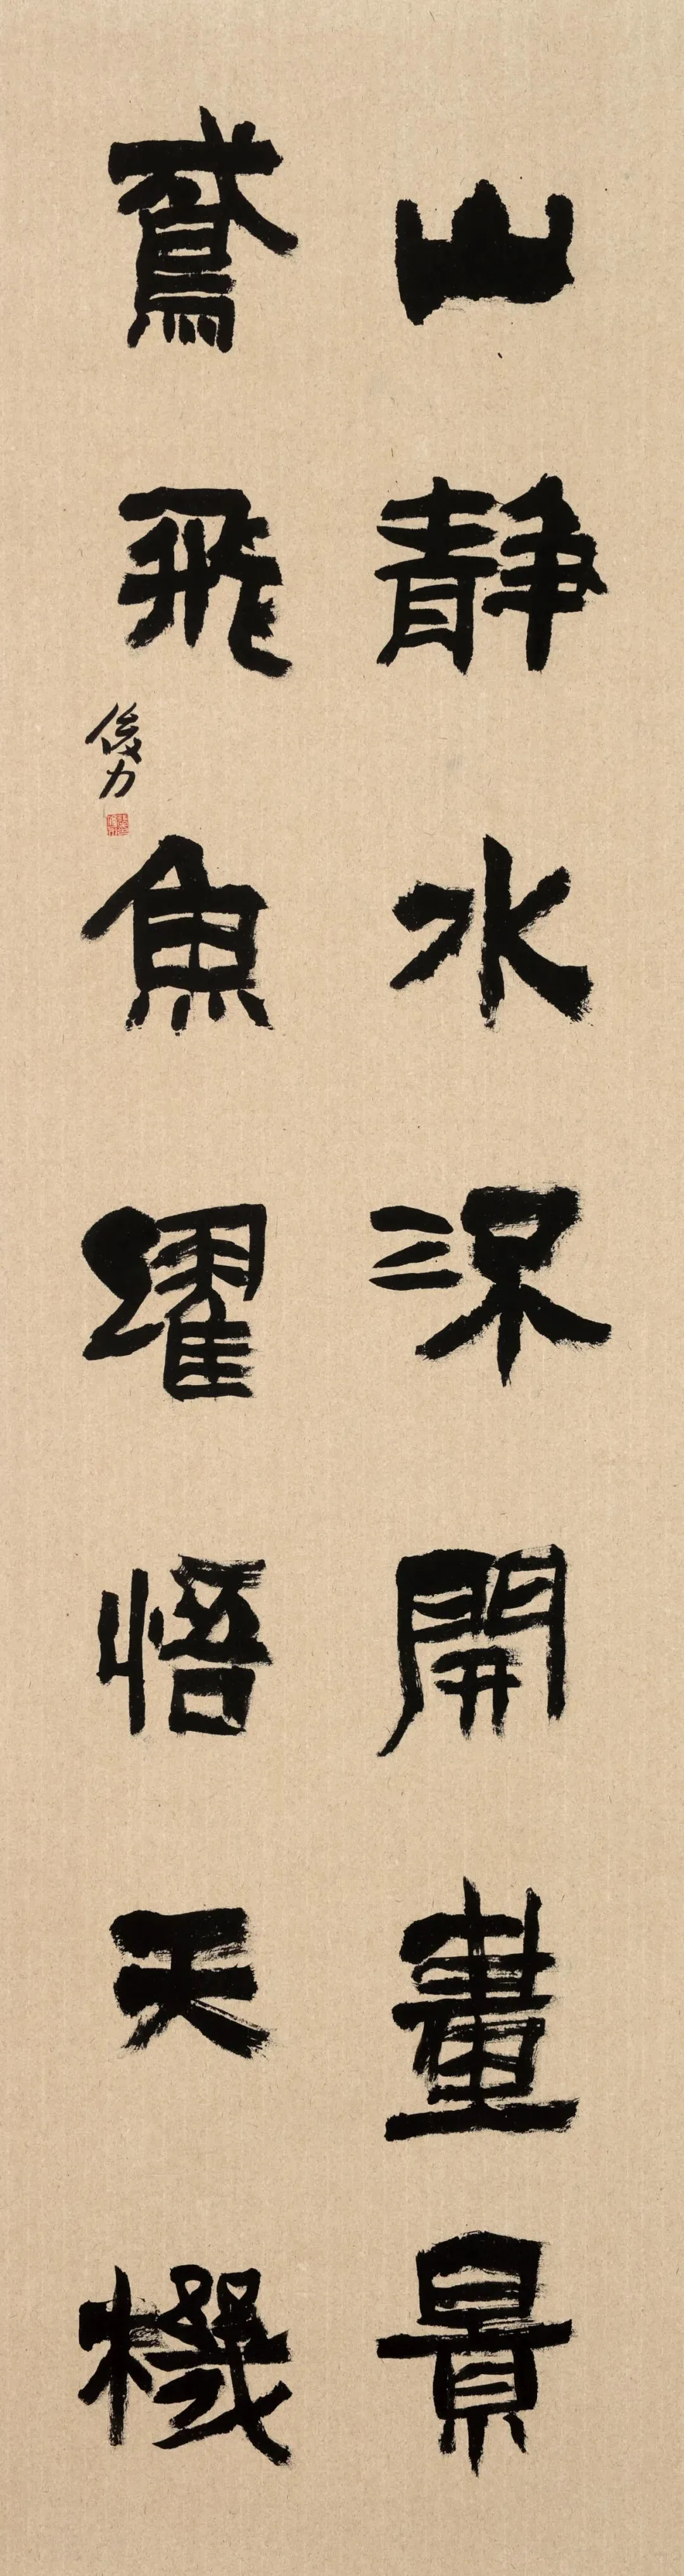 山静水深開畫景
鳶飛魚躍悟天機
俊力